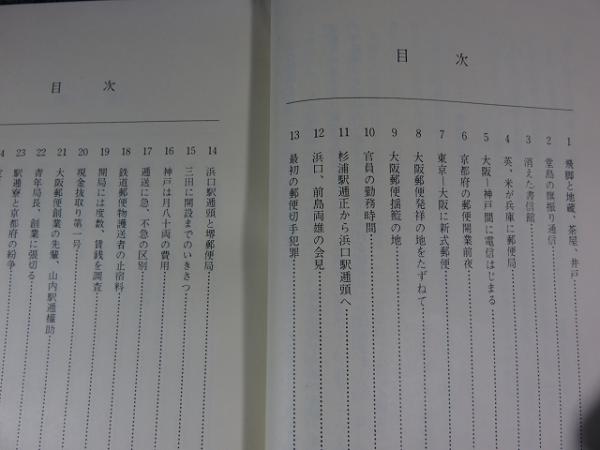 目次
1 飛脚と地蔵、茶屋、井戸
2 堂島の旗振り通信
3 消えた書信館
4 英、米が兵庫に郵便局
5 大阪―神戸間に電信はじまる
6 京都府の郵便開業前夜
7 東京―大阪に新式郵便
8 大阪郵便発祥の地をたずねて
9 大阪郵便揺籃の地
10 官員の勤務時間
11 杉浦駅逓正から浜口駅逓頭へ
12 浜口、前島両雄の会見
13 最初の郵便切手犯罪
目次
14 浜口駅逓頭と堺郵便局
15 三田に開設までのいきさつ
16 神戸は月八十両の費用
17 逓送に急、不急の区別
18 鉄道郵便物護送者の止宿料
19 開局には度数、賃銭を調査
20 現金抜取り第一号
21 大阪郵便創業の先輩、山内駅逓権助
22 青年局長、創業に張切る
23 駅逓寮と京都府の紛争